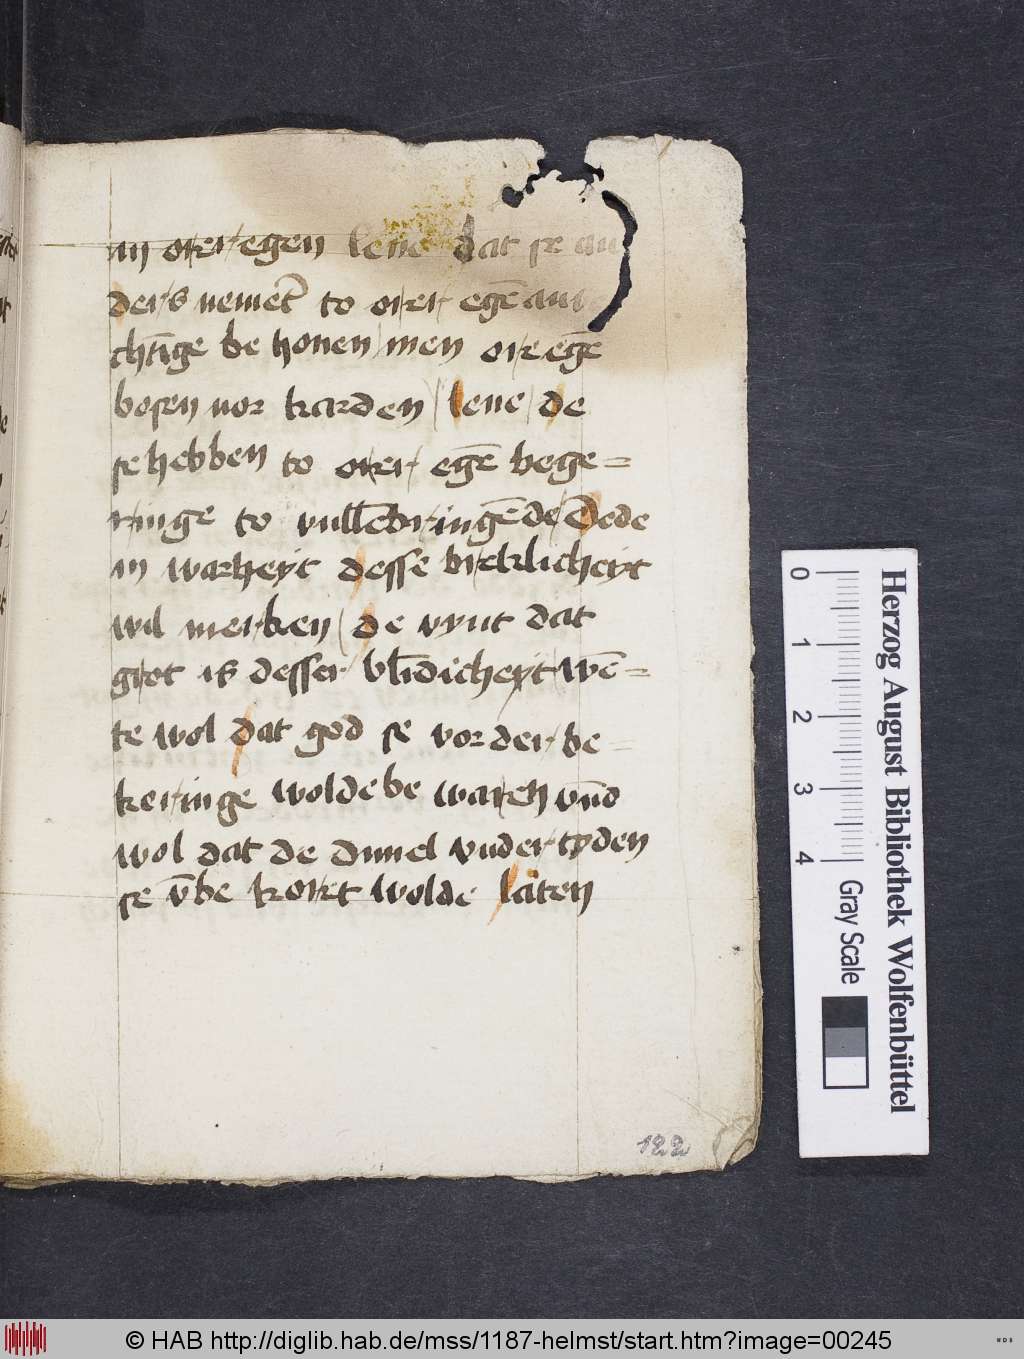 in orer egen leue dat se an
ders nemet̄ to orer egē
cht̄ige be houen men ore egē
bosen vor karden leue de
se hebben to orer egē bege=
ringe to vullēbringēde Dede
in warheyt desse birklicheyt
wil merken de vynt dat
grot is desser vl̄idicheyt wē=
te wol dat god se vor der be=
keringe wolde be waren vn̄d
wol dat de duuel vnder tyden
se v̄be koret wolde laten
122
0 1 2 3 4
Gray Scale
Herzog August Bibliothek Wolfenbüttel
© HAB http://diglib.hab.de/mss/1187-helmst/start.htm?image=00245
WDB